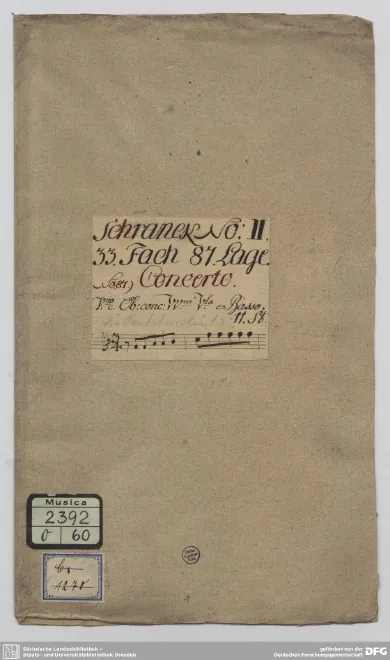 Schranck No: II.
33. Fach 87. Lage
Concerto.
V.no e Ob: conc: VVni V.la e Basso.
11. St.
Musica
2392
O 60
Cx
1270
Sächsische Landesbibliothek –
Staats- und Universitätsbibliothek Dresden
gefördert von der
Deutschen Forschungsgemeinschaft
DFG